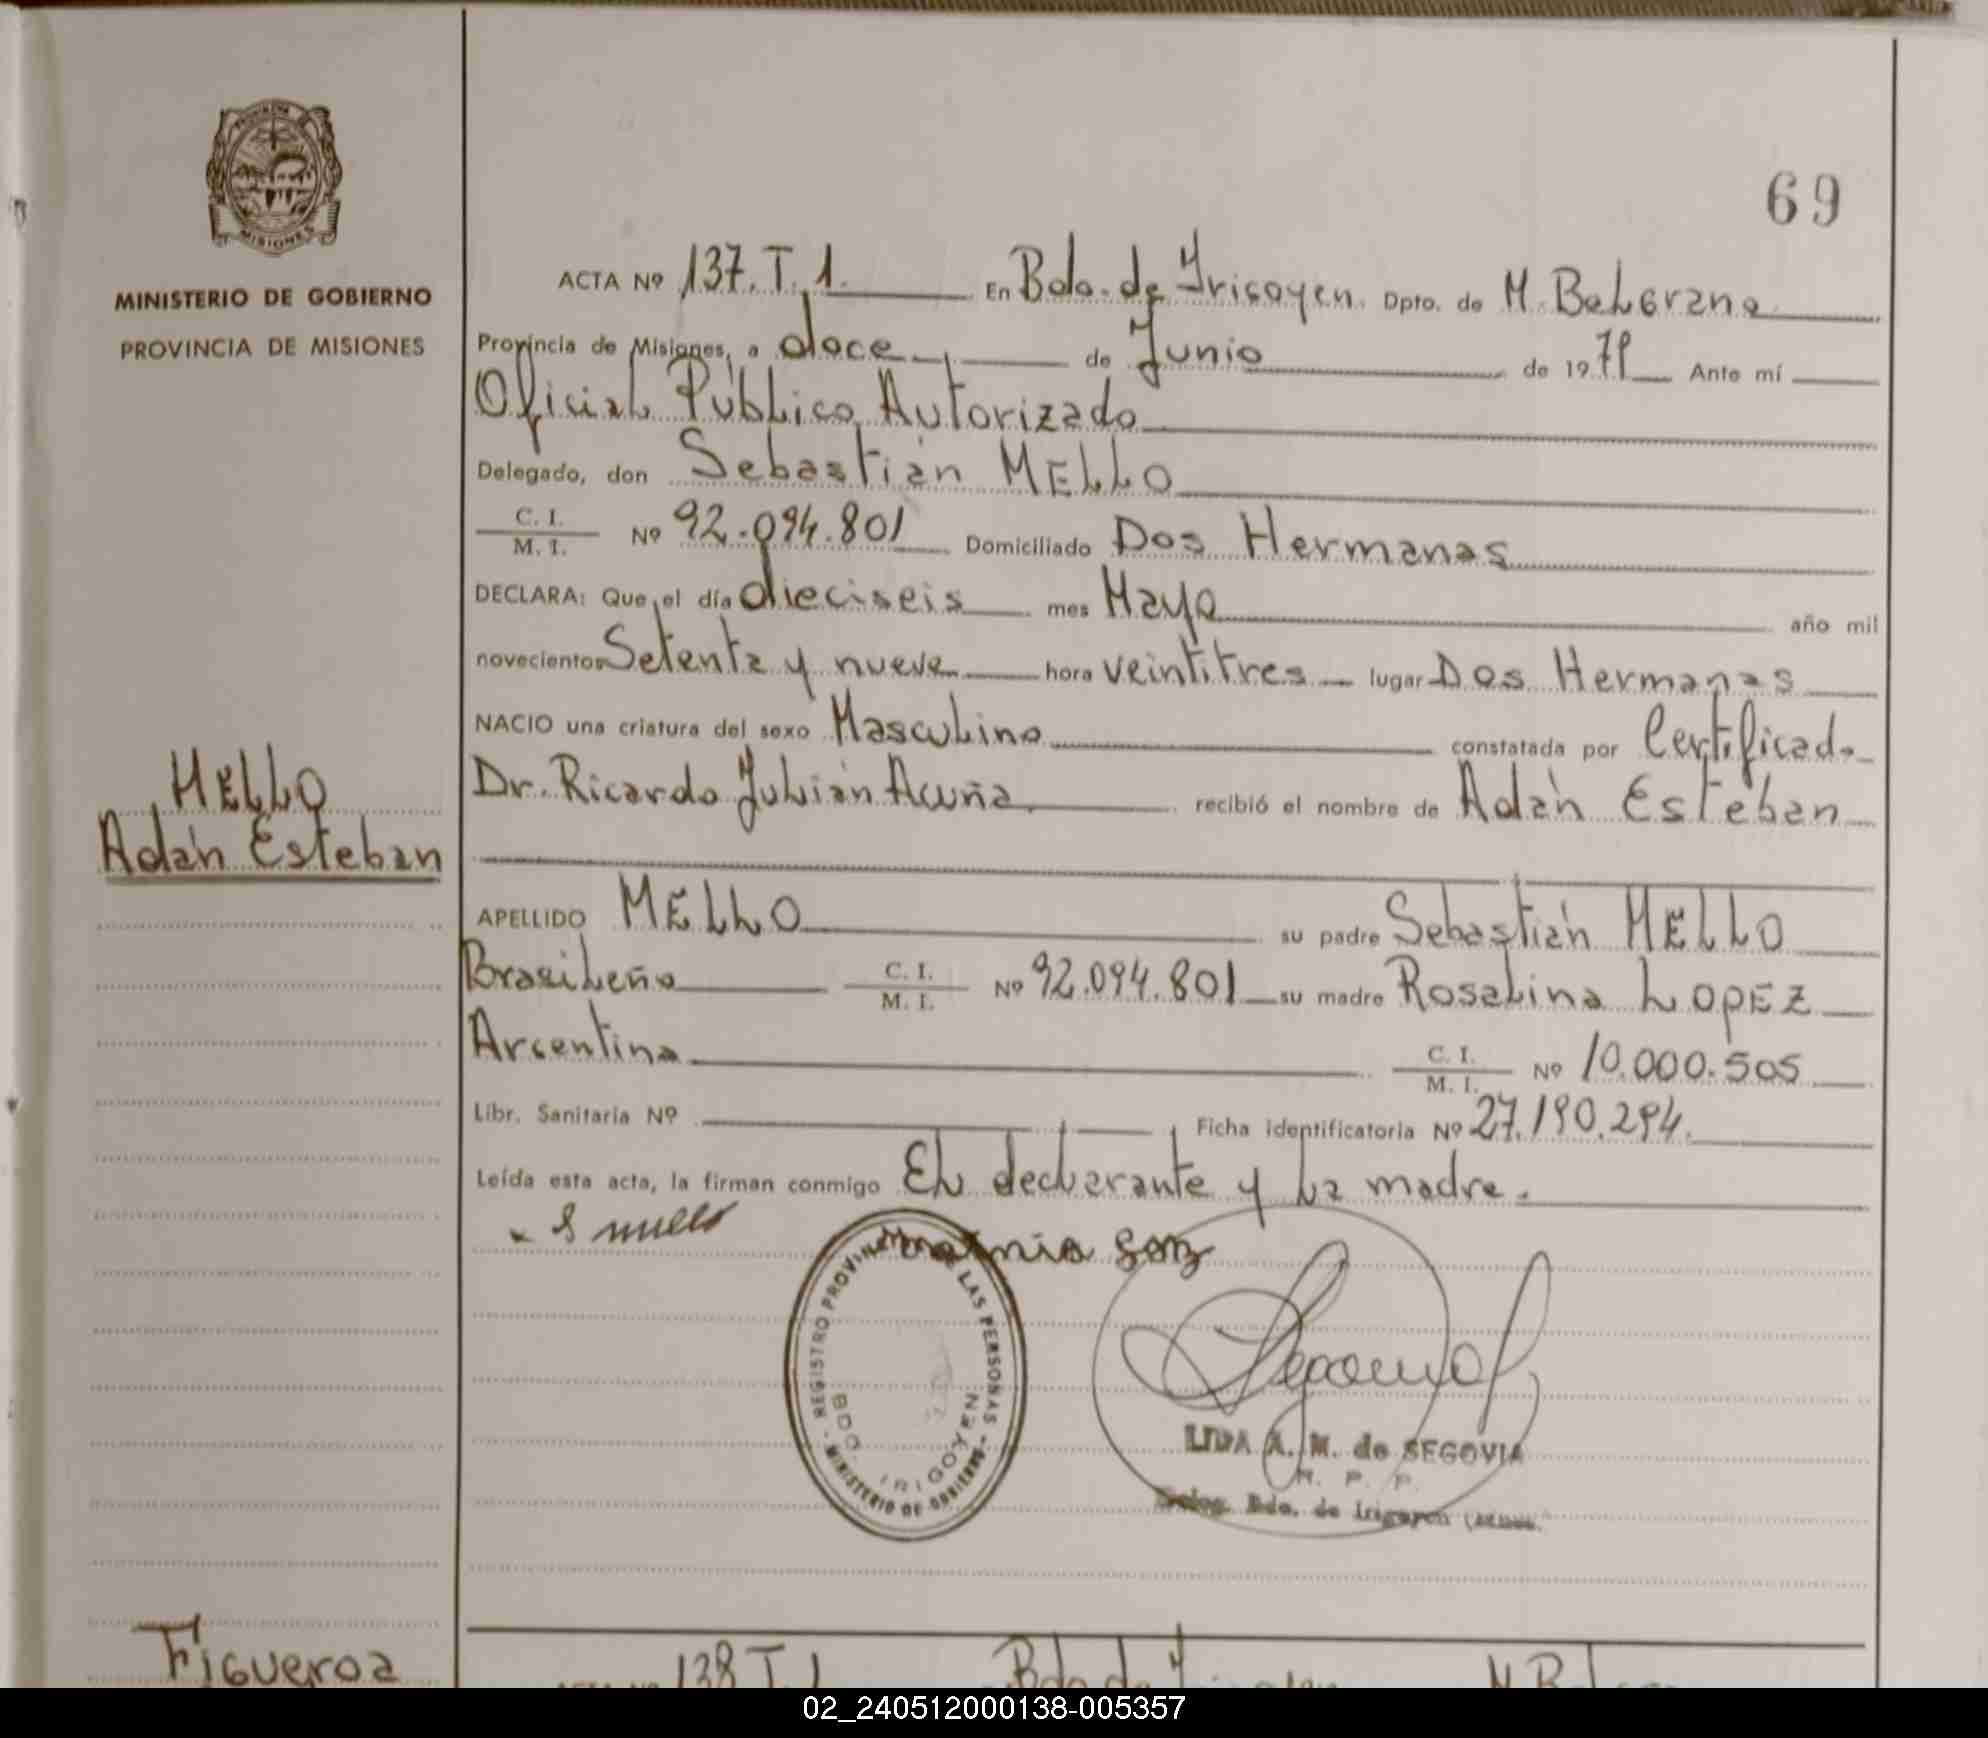 PROVINCIA
MISIONES
MINISTERIO DE GOBIERNO
PROVINCIA DE MISIONES
69
ACTA Nº 137.T.1. En Bdo. de Irigoyen Dpto. de M. Belgrano
Provincia de Misiones, a doce de Junio de 1979 Ante mí
Oficial Público Autorizado
Delegado, don Sebastián MELLO
C. I.
M. I. Nº 92.094.801 Domiciliado Dos Hermanas
DECLARA: Que el día dieciseis mes Mayo año mil
novecientos Setenta y nueve hora veintitres lugar Dos Hermanas
NACIO una criatura del sexo Masculino constatada por Certificado
Dr. Ricardo Julián Acuña. recibió el nombre de Adán Esteban
MELLO
Adán Esteban
APELLIDO MELLO su padre Sebastián MELLO
Brasileño C. I.
M. I. Nº 92.094.801 su madre Rosalina LOPEZ
Argentina C. I.
M. I. Nº 10.000.505
Libr. Sanitaria Nº Ficha identificatoria Nº 27.190.294.
Leída esta acta, la firman conmigo El declarante y la madre.
S mello
REGISTRO PROVINCIAL DE LAS PERSONAS
BDO. IRIGOYEN
MINISTERIO DE GOBIERNO
LIDA A. M. de SEGOVIA
R. P. P.
Deleg. Bdo. de Irigoyen (Mnes.
Figueroa
ACTA Nº 138 T. 1 Bdo de Irigoyen M. Belgrano
02_240512000138-005357